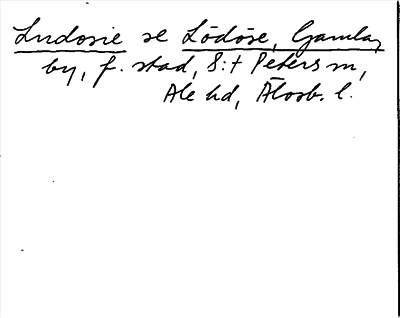 Ludosie se Lödöse, Gamla,
by, f. stad, S:t Peters sn,
Ale hd, Älvsb. l.